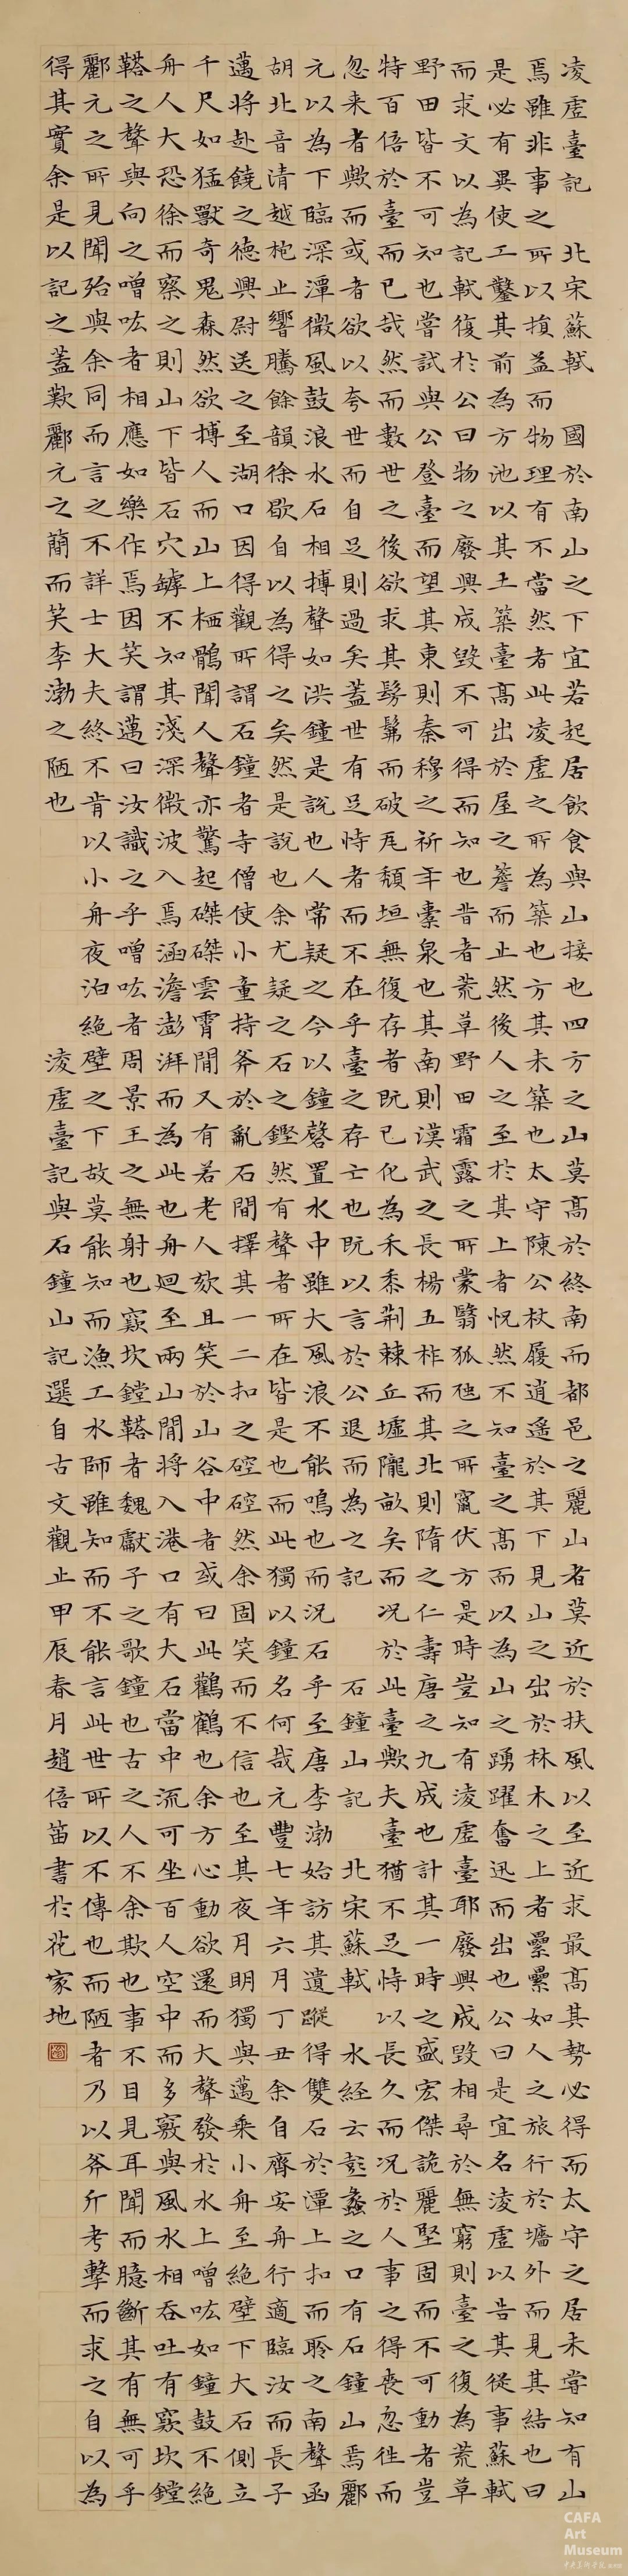 凌虛臺記 北宋蘇軾 國於南山之下宜若起居飲食與山接也四方之山莫高於終南而都邑之麗山者莫近於扶風以至近求最高其勢必得而太守之居未嘗知有山
焉雖非事之所以損益而物理有不當然者此凌虛之所為築也方其未築也太守陳公杖履逍遙於其下見山之出於林木之上者纍纍如人之旅行於墻外而見其結也曰
是必有異使工鑿其前為方池以其土築臺高出於屋之簷而止然後人之至於其上者怳然不知臺之高而以為山之踴躍奮迅而出也公曰是宜名凌虛以告其從事蘇軾
而求文以為記軾復於公曰物之廢興成毀不可得而知也昔者荒草野田霜露之所蒙翳狐虺之所竄伏方是時豈知有凌虛臺耶廢興成毀相尋於無窮則臺之復為荒草
野田皆不可知也嘗試與公登臺而望其東則秦穆之祈年橐泉也其南則漢武之長楊五柞而其北則隋之仁壽唐之九成也計其一時之盛宏傑詭麗堅固而不可動者豈
特百倍於臺而已哉然而數世之後欲求其髣髴而破瓦頹垣無復存者既已化為禾黍荊棘丘墟隴畝矣而況於此臺歟夫臺猶不足恃以長久而況於人事之得喪忽往而
忽来者歟而或者欲以夸世而自足則過矣蓋世有足恃者而不在乎臺之存亡也既以言於公退而為之記 石鐘山記 北宋蘇軾 水經云彭蠡之口有石鐘山焉酈
元以為下臨深潭微風鼓浪水石相搏聲如洪鐘是說也人常疑之今以鐘磬置水中雖大風浪不能鳴也而況石乎至唐李渤始訪其遺蹤得雙石於潭上扣而聆之南聲函
胡北音清越枹止響騰餘韻徐歇自以為得之矣然是說也余尤疑之石之鏗然有聲者所在皆是也而此獨以鐘名何哉元豐七年六月丁丑余自齊安舟行適臨汝而長子
邁將赴饒之德興尉送之至湖口因得觀所謂石鐘者寺僧使小童持斧於亂石間擇其一二扣之硿硿然余固笑而不信也至其夜月明獨與邁乘小舟至絕壁下大石側立
千尺如猛獸奇鬼森然欲搏人而山上栖鶻聞人聲亦驚起磔磔雲霄間又有若老人欬且笑於山谷中者或曰此鸛鶴也余方心動欲還而大聲發於水上噌吰如鐘鼓不絕
舟人大恐徐而察之則山下皆石穴罅不知其淺深微波入焉涵澹澎湃而為此也舟迴至兩山間將入港口有大石當中流可坐百人空中而多竅與風水相吞吐有窾坎鏜
鞳之聲與向之噌吰者相應如樂作焉因笑謂邁曰汝識之乎噌吰者周景王之無射也窾坎鏜鞳者魏獻子之歌鐘也古之人不余欺也事不目見耳聞而臆斷其有無可乎
酈元之所見聞殆與余同而言之不詳士大夫終不肯以小舟夜泊絕壁之下故莫能知而漁工水師雖知而不能言此世所以不傳也而陋者乃以斧斤考擊而求之自以為
得其實余是以記之蓋歎酈元之簡而笑李渤之陋也 凌虛臺記與石鐘山記選自古文觀止甲辰春月趙倍笛書於花家地
CAFA
Art
Museum